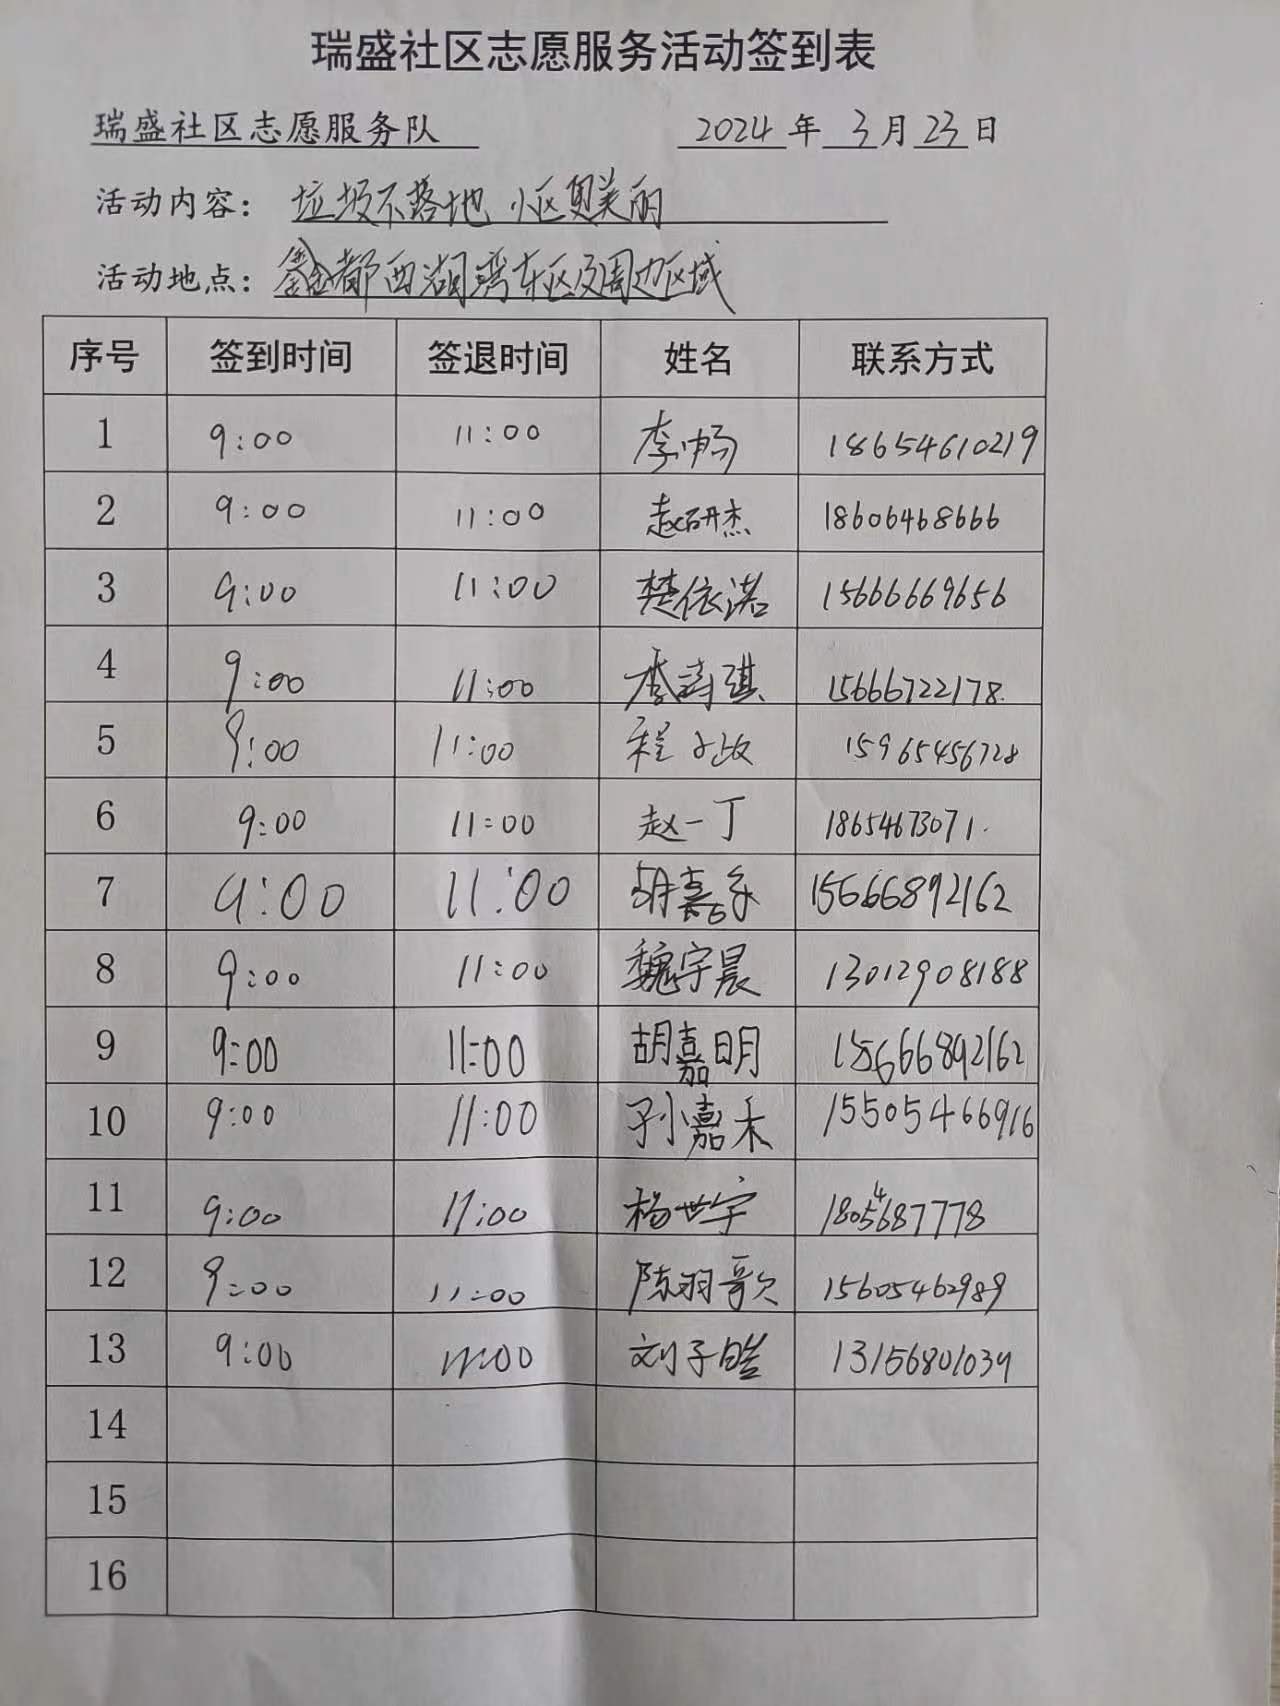 瑞盛社区志愿服务活动签到表
瑞盛社区志愿服务队 2024年3月23日
活动内容：垃圾不落地 小区更美丽
活动地点：鑫都西湖湾东区及周边区域
序号 签到时间 签退时间 姓名 联系方式
1 9:00 11:00 李畅 18654610219
2 9:00 11:00 赵研杰 18606468666
3 9:00 11:00 楚依诺 15666669656
4 9:00 11:00 季诗琪 15666722178
5 9:00 11:00 程 15965456728
6 9:00 11:00 赵一丁 18654673071
7 9:00 11:00 胡嘉乐 15666892162
8 9:00 11:00 魏宇晨 13012908188
9 9:00 11:00 胡嘉明 15666892162
10 9:00 11:00 孙嘉禾 15505466916
11 9:00 11:00 杨世宇 18054687778
12 9:00 11:00 陈羽歌 15605462989
13 9:00 11:00 刘子皓 13156801039
14
15
16